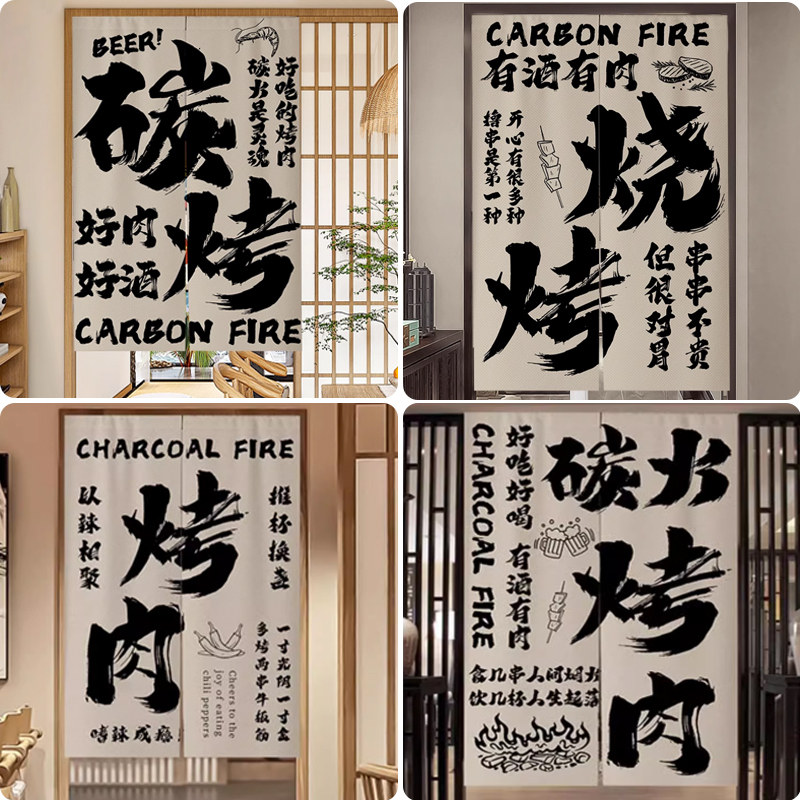 BEER!
碳烤
好吃的烤肉
碳火是灵魂
好肉
好酒
CARBON FIRE
CARBON FIRE
有酒有肉
烧烤
开心有很多种
撸串是第一种
串串不贵
但很对胃
CHARCOAL FIRE
推杯换盏
以辣相聚
烤肉
一寸光阴一寸
多烤两串牛板筋
Cheers to the
joy of eating
chili peppers
嗜辣成瘾
碳火
烤肉
好吃好喝 有酒有肉
CHARCOAL FIRE
食几串人间烟火
饮几杯人生起落